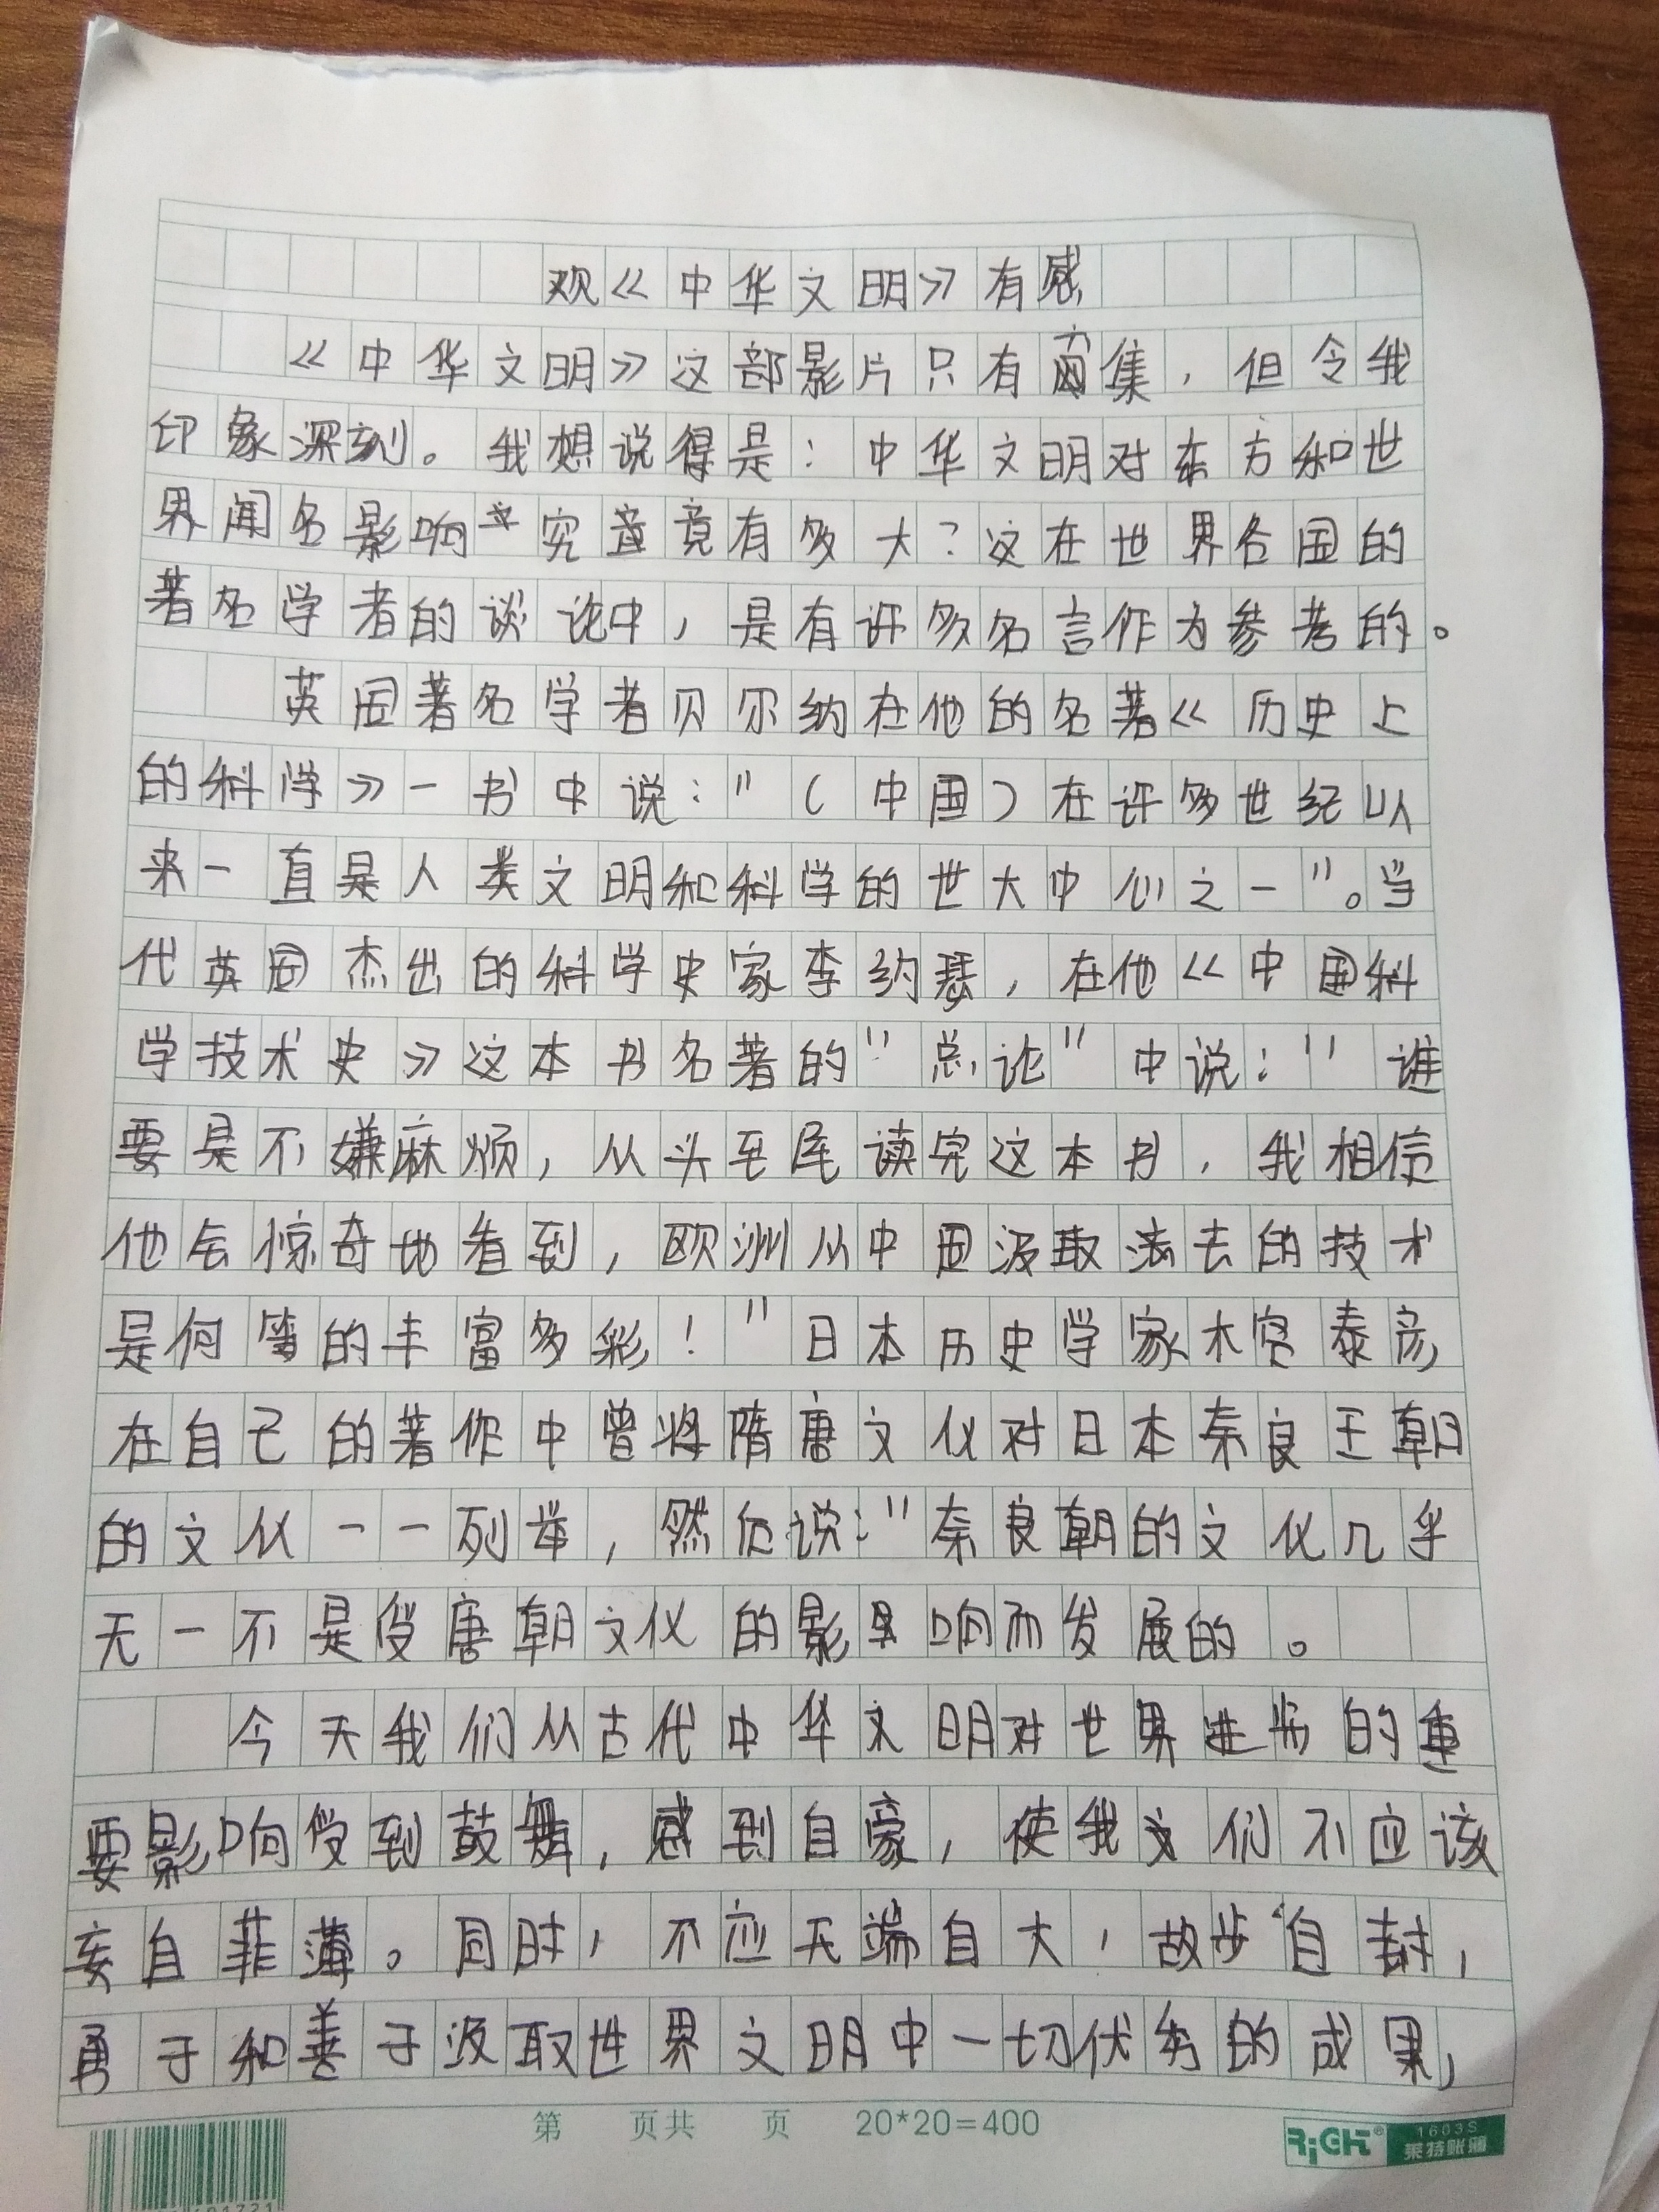 观《中华文明》有感
《中华文明》这部影片只有两集，但令我
印象深刻。我想说得是：中华文明对东方和世
界闻名影响究竟有多大？这在世界各国的
著名学者的谈论中，是有许多名言作为参考的。
英国著名学者贝尔纳在他的名著《历史上
的科学》一书中说："（中国）在许多世纪以
来一直是人类文明和科学的世大中心之一"。当
代英国杰出的科学史家李约瑟，在他《中国科
学技术史》这本书名著的"总论"中说："谁
要是不嫌麻烦，从头至尾读完这本书，我相信
他会惊奇地看到，欧洲从中国汲取过去的技术
是何等的丰富多彩！"日本历史学家木宫泰彦
在自己的著作中曾将隋唐文化对日本奈良王朝
的文化一一列举，然后说："奈良朝的文化几乎
无一不是受唐朝文化的影响而发展的。
今天我们从古代中华文明对世界进步的重
要影响受到鼓舞，感到自豪，使我们不应该
妄自菲薄。同时，不应无端自大，故步自封，
勇于和善于汲取世界文明中一切优秀的成果，
第 页共 页 20*20=400
RiGHT® 1603S
莱特账簿